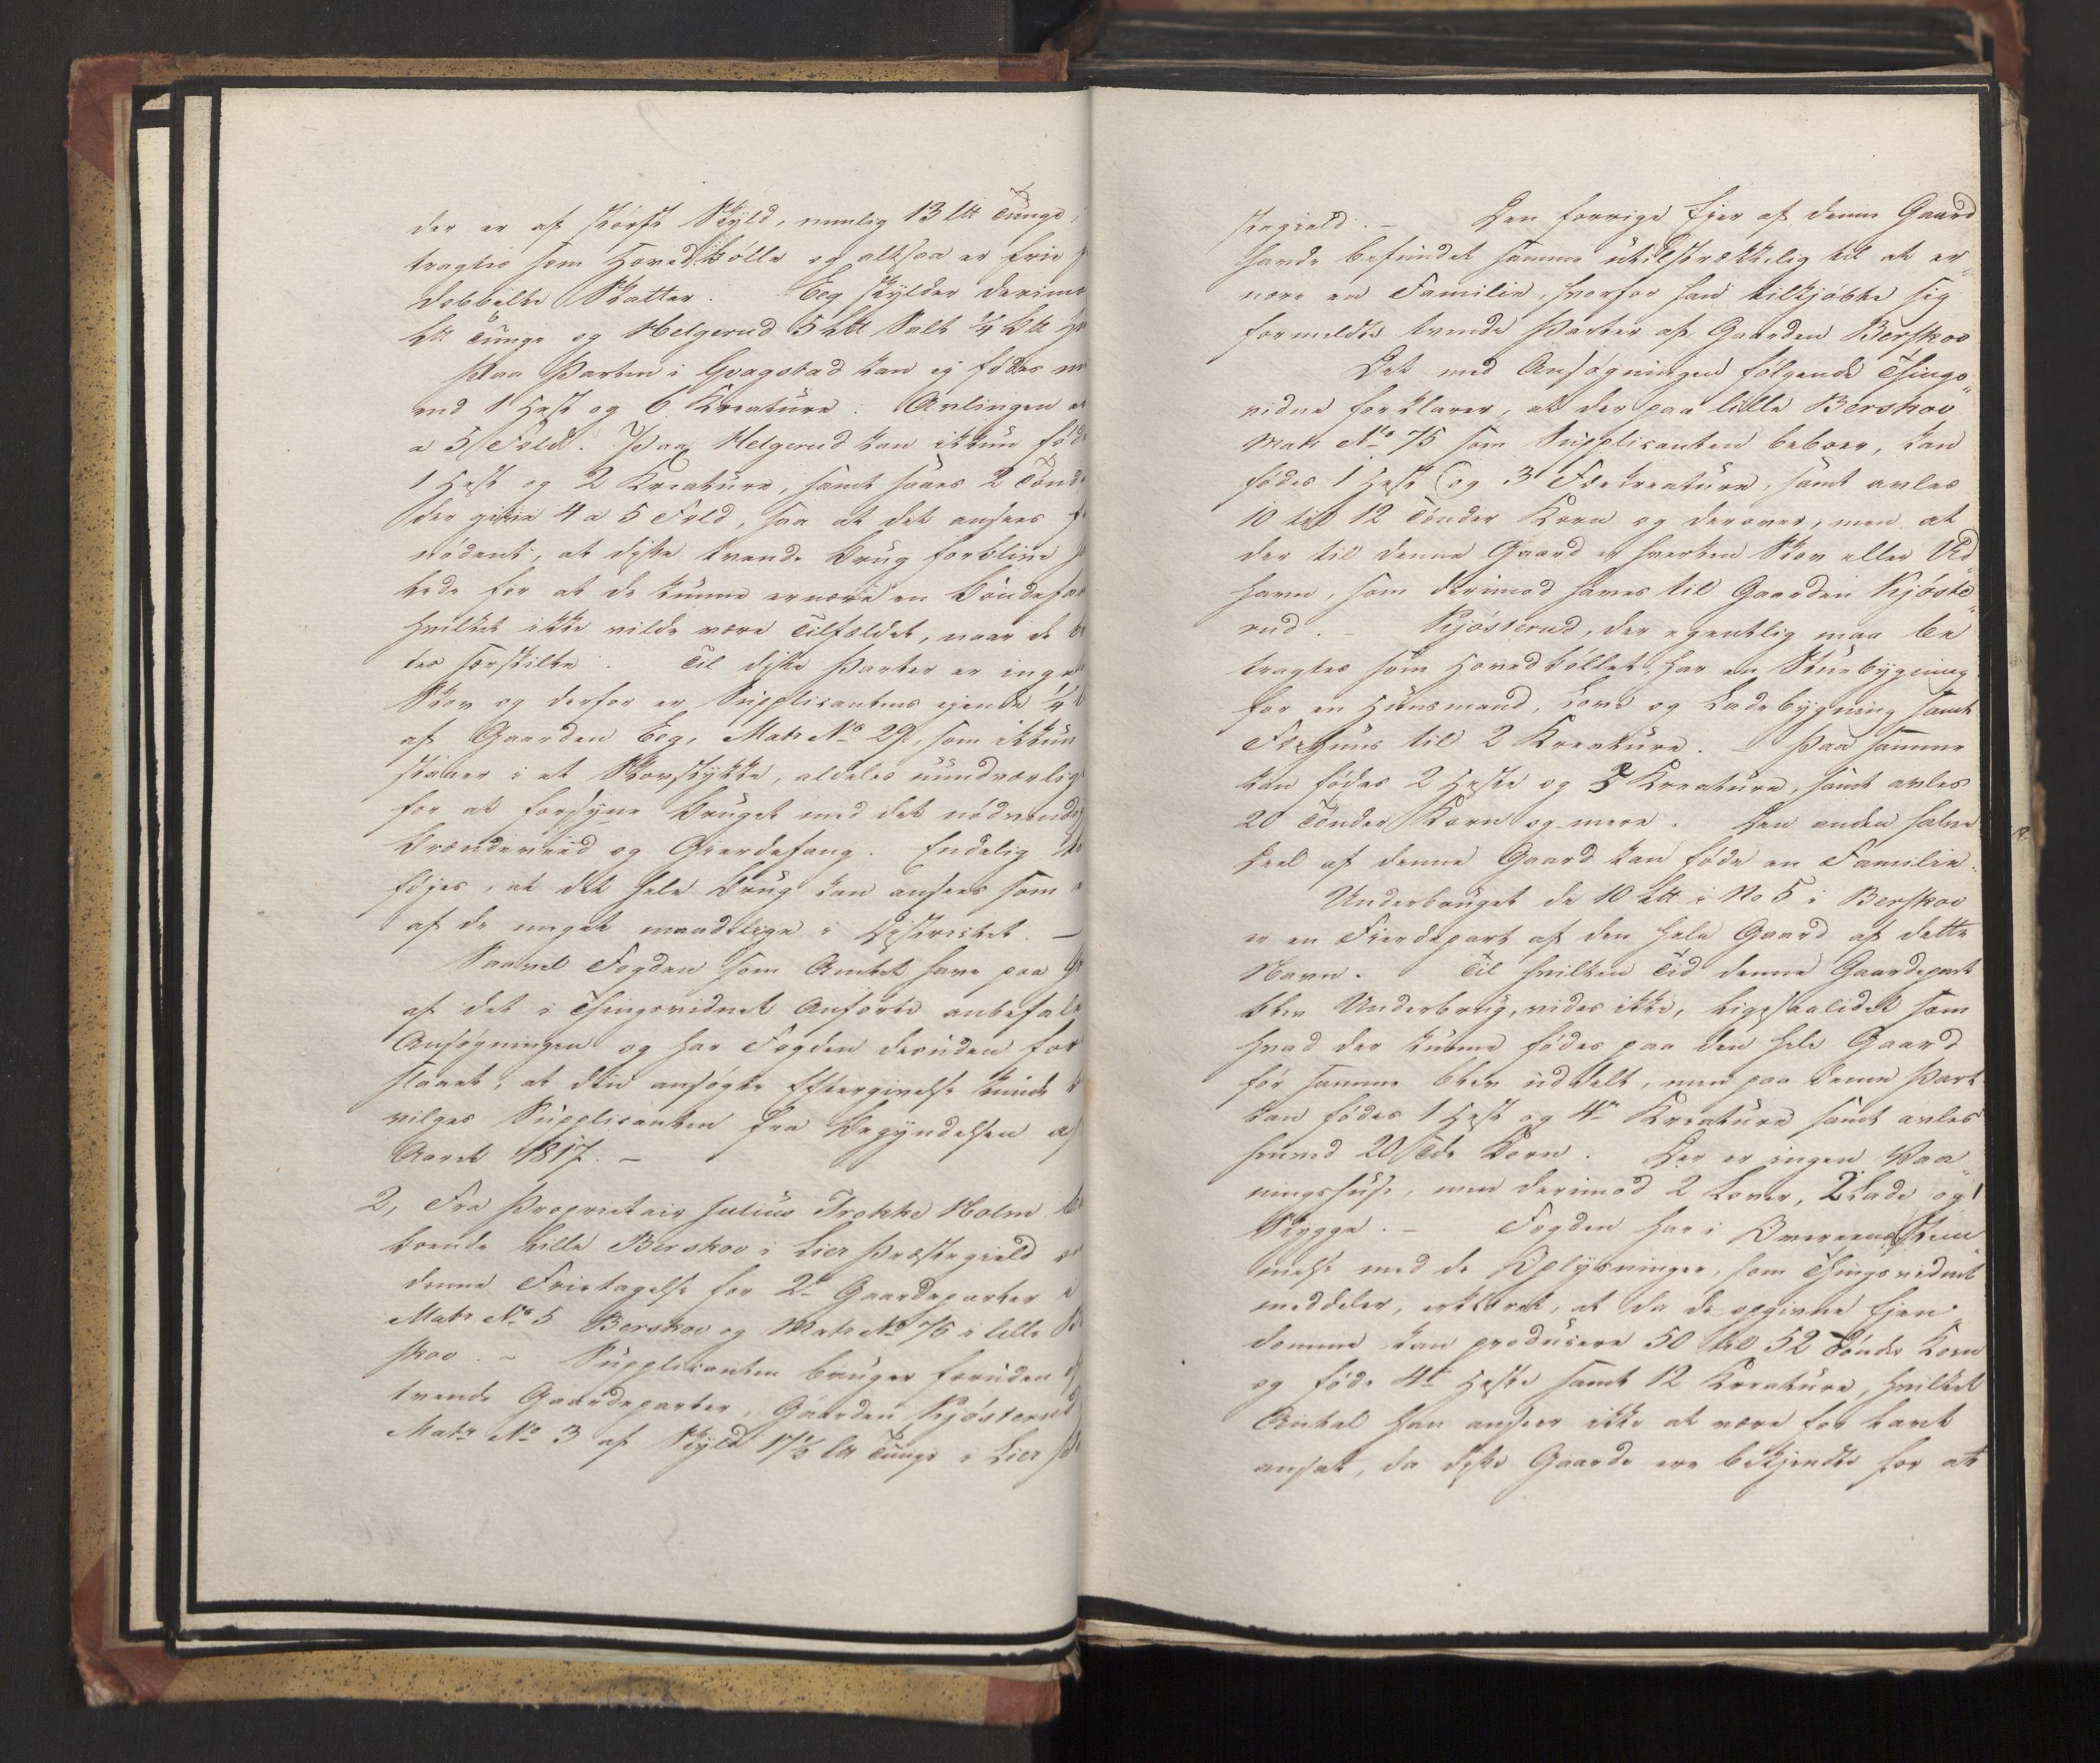 der er af største Skyld, nemlig 13 L℔ Tunge,
tragtes som Hovedbølle og altsaa er frie
dobbelte Skatter. Eeg skylder derimo
L℔ Tunge og Helgerud 5 L℔ Salt ¼ L℔
Paa Parten i Gvagstad kan ej fødes
end 1 Hest og 6 Kreature. Avlingen er
a 5 Fold. Paa Helgerud kan ikkun fød
1 Hest og 2 Kreature, samt saaes 2 Tønd
der give 4 a 5 Fold, saa at det ansees
nødent, at disse tvende Brug forblive
lede for at de kunne ernære en Bondefam
hvilket ikke vilde være Tilfældet, naar de
tes særskilte. Til disse Parter er ingen
Skov og derfor er Supplicantens ejende ¼
af Gaarden Eeg, Matr No 29, som ikkun
staaer i et Skovstykke, aldeles uundværlig
for at forsyne Bruget med det nødvendig
Brændeveed og Gierdefang. Endelig
føjes, at det hele Brug kan ansees som
af de meget maadelige i Districtet. —
Saavel Fogden som Amtet have paa
af det i Thingsvidnet Anførte anbefale
Ansøgningen og har Fogden desuden for
slaaet, at den ansøgte Eftergivelse kunde
vilges Supplicanten fra Begyndelsen af
Aaret 1817. —
2, Fra Proprietair Julius Frokke Holm
boende lille Berskov i Lier Præstegield
denne Fritagelse for 2de Gaardeparter i
Matr No 5 Berskov og Matr No 75 i lille Be
skov. — Supplicanten bruger foruden
tvende Gaardeparter, Gaarden Kjøsterud
Matr No 3 af Skyld 17½ L℔ Tunge i Lier
stegield. — Den forrige Ejer af denne Gaard
havde befundet samme utilstrækkelig til at er
nære en Familie, hvorfor han tilkjøbte sig
formeldte tvende Parter af Gaarden Berskov
Det med Ansøgningen følgende Things
vidne forklarer, at der paa lille Berskov
Matr No 75 som Supplicanten beboer, kan
fødes 1 Hest og 3 Fækreature, samt avles
10 til 12 Tønder Korn og derover, men at
der til denne Gaard er hverken Skov eller Ud
havn, som derimod haves til Gaarden Kjøste
rud. — Kjøsterud, der egentlig maa be
tragtes som Hovedbøllet, har en Stuebygning
for en Huusmand, Love og Ladebygning samt
Fæehuus til 2 Kreature. — Paa samme
kan fødes 2 Heste og 5 Kreature, samt avles
20 Tønder Korn og mere. Den anden halve
Deel af denne Gaard kan føde en Familie.
Underbruget de 10 L℔ i No 5 i Berskov
er en Fierdepart af den hele Gaard af dette
Navn. Til hvilken Tid denne Gaardepart
blev Underbrug, vides ikke, ligesaalidet som
hvad der kunne fødes paa den hele Gaard
før samme blev uddelt, men paa denne Part
kan fødes 1 Hest og 4re Kreature samt avles
henved 20 Tdr Korn. Der er ingen Vaa
ningshuse, men derimod 2 Lover, 2 Lade og 1
Skygge. — Fogden har i Overeensstem
melse med de Oplysninger, som Thingsvidnet
meddeler, erklæret, at da de opgivne Ejen
domme kan producere 50 til 52 Tønder Korn
og føde 4re Heste samt 12 Kreature, hvilket
Antal han anseer ikke at være for lavt
ansat, da disse Gaarde ere bekjendte for at